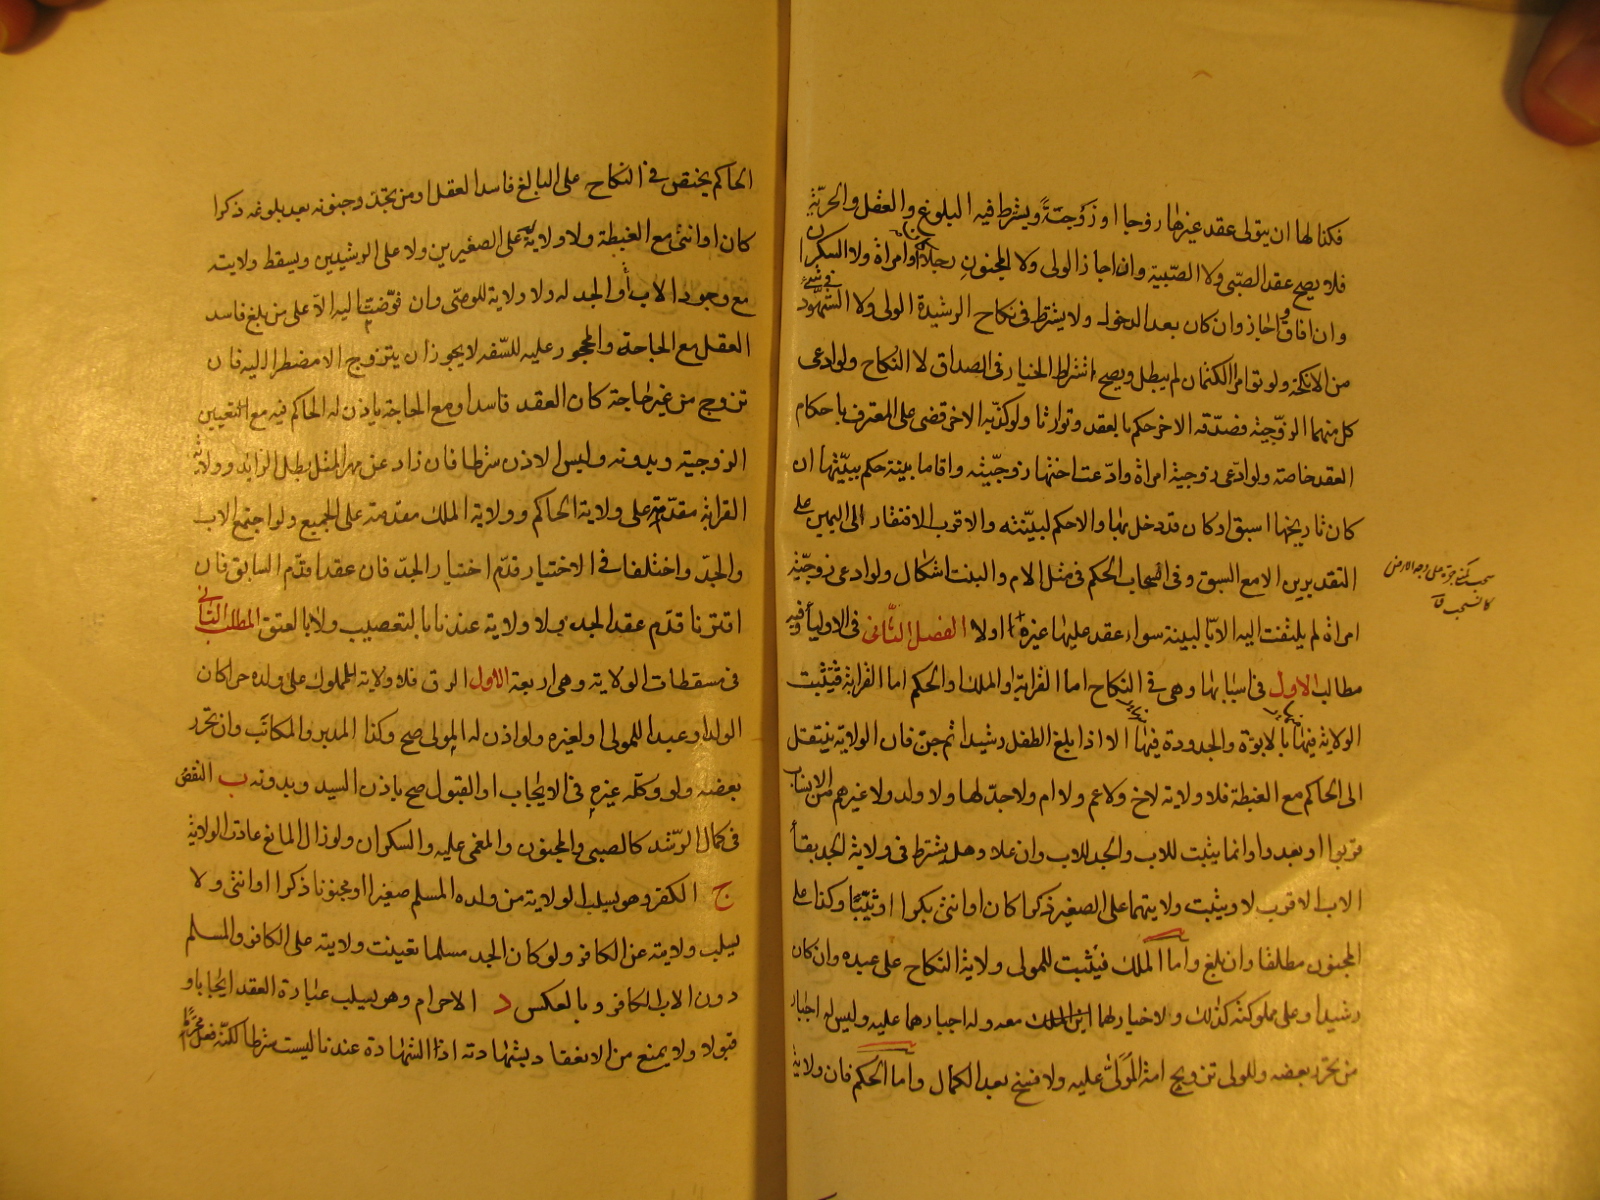 فكذا لها ان يتولى عقد غيرها زوجا او زوجة ويشترط فيه البلوغ والعقل والحرية
فلا يصح عقد الصبي ولا الصبية وان اجاز الولي ولا المجنون رجلا او امراة ولا السكران
وان افاق واجاز وان كان بعد الدخول ولا يشترط في نكاح الرشيدة الولي ولا الشهود في شئ
من الانكحة ولو تؤامرا الكتمان لم يبطل ويصح اشتراط الخيار في الصداق لا النكاح ولو ادعى
كل منهما الزوجية فصدقه الاخر حكم بالعقد وتوارثا ولو كذبه الاخر قضى على المعترف باحكام
العقد خاصة ولو ادعى زوجية امراة وادعت اختها زوجيته واقاما بينة حكم ببينتها ان
كان تاريخها اسبق او كان قد دخل بها والا حكم لبينته والاقرب الافتقار الى اليمين على
التقديرين الا مع السبق وفي انسحاب الحكم في مثل الام والبنت اشكال ولو ادعى زوجية
امراة لم يلتفت اليه الا بالبينة سواء عقد عليها غيره اولا الفصل الثاني في الاولياء وفيه
مطالب الاول في اسبابها وهي في النكاح اما القرابة او الملك او الحكم اما القرابة فيثبت
الولاية فيها بالابوة والجدودة فيها الا اذا بلغ الطفل رشيدا ثم جن فان الولاية ينتقل
الى الحاكم مع الغبطة فلا ولاية لاخ ولا عم ولا ام ولا جد لها ولا ولد ولا غيرهم من الانساب
قربوا او بعدوا وانما يثبت للاب والجد للاب وان علا وهل يشترط في ولاية الجد بقاء
الاب الاقرب لا ويثبت ولايتهما على الصغير ذكرا كان او انثى بكرا او ثيبا وكذا على
المجنون مطلقا وان بلغ واما الملك فيثبت للمولى ولاية النكاح على عبده وان كان
رشيدا وعلى مملوكته كذلك ولا خيار لهما معه وله اجبارهما عليه وليس له اجبار
من تحرر بعضه وللولى تزويج امة المولى عليه ولا فسخ بعد الكمال واما الحكم فان ولاية
الحاكم يختص في النكاح على البالغ فاسد العقل او من تجدد جنونه بعد بلوغه ذكرا
كان او انثى مع الغبطة ولا ولاية له على الصغيرين ولا على الرشيدين ويسقط ولايته
مع وجود الاب او الجد له ولا ولاية للوصي وان فوضت اليه الا على من بلغ فاسد
العقل مع الحاجة والمحجور عليه للسفه لا يجوز ان يتزوج الا مضطرا اليه فان
تزوج من غير حاجة كان العقد فاسدا ومع الحاجة ياذن له الحاكم فيه مع التعيين
الزوجية وبدونه وليس الاذن شرطا فان زاد عن مهر المثل بطل الزايد وولاية
القرابة مقدمة على ولاية الحاكم وولاية الملك مقدمة على الجميع ولو اجتمع الاب
والجد واختلفا في الاختيار قدم اختيار الجد فان عقدا قدم السابق فان
اقترنا قدم عقد الجد ولا ولاية عندنا بالتعصيب ولا بالعتق المطلب الثاني
في مسقطات الولاية وهي اربعة الاول الرق فلا ولاية للمملوك على ولده حرا كان
الولد او عبدا للمولى او لغيره ولو اذن له المولى صح وكذا المدبر والمكاتب وان تحرر
بعضه ولو وكله غيره في الايجاب او القبول صح باذن السيد وبدونه ب النقص
في كمال الرشد كالصبي والمجنون والمغمى عليه والسكران ولو زال المانع عادت الولاية
ج الكفر وهو يسلب الولاية من ولده المسلم صغيرا او مجنونا ذكرا او انثى ولا
يسلب ولايته عن الكافر ولو كان الجد مسلما تعينت ولايته على الكافر والمسلم
دون الاب الكافر وبالعكس د الاحرام وهو يسلب عبارة العقد ايجابا و
قبولا ولا يمنع من الانعقاد بشهادته اذا الشهادة عندنا ليست شرطا لكنه فعل محرما